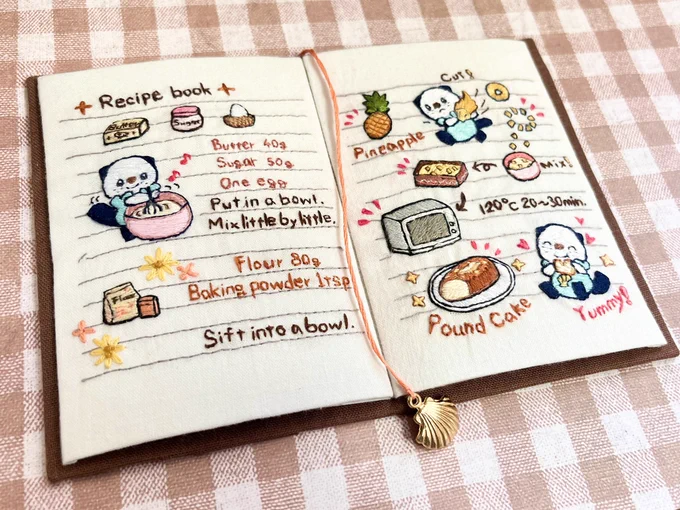 Recipe book
Butter
Sugar
Butter 40g
Sugar 50g
One egg
Put in a bowl.
Mix little by little.
Flour 80g
Baking powder 1tsp
Flour
Sift into a bowl.
Cut!
Pineapple
Mix!
120°C 20~30min.
Pound Cake
Yummy!